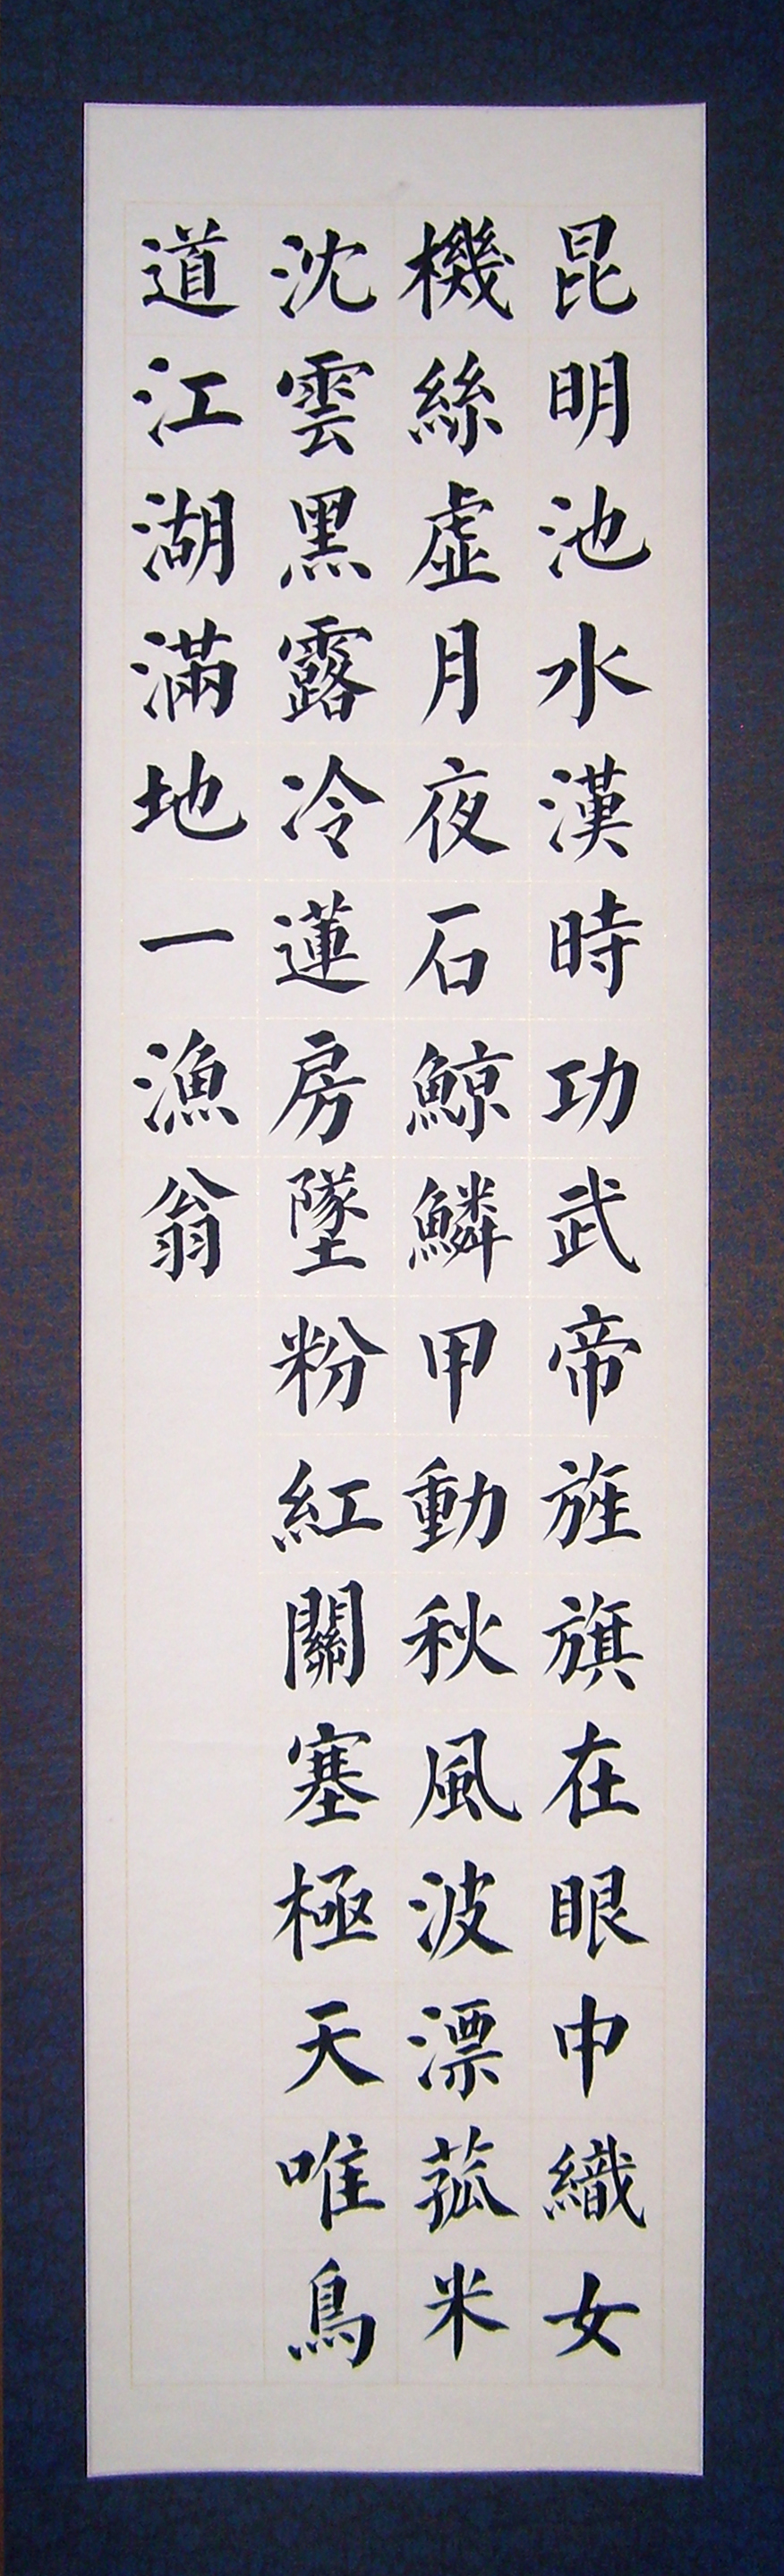 昆明池水漢時功武帝旌旗在眼中織女
機絲虛月夜石鯨鱗甲動秋風波漂菰米
沈雲黑露冷蓮房墜粉紅關塞極天唯鳥
道江湖滿地一漁翁